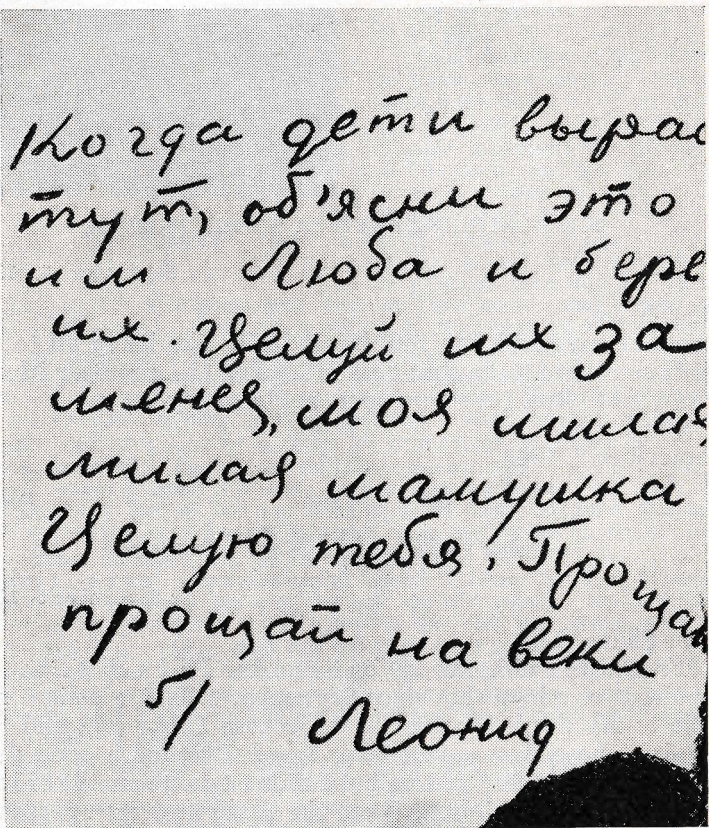 Когда дети вырас
тут, об'ясни это
им Люба и бере
их. Целуй их за
меня, моя милая,
милая мамушка
Целую тебя. Прощай
прощай на веки
5/ Леонид